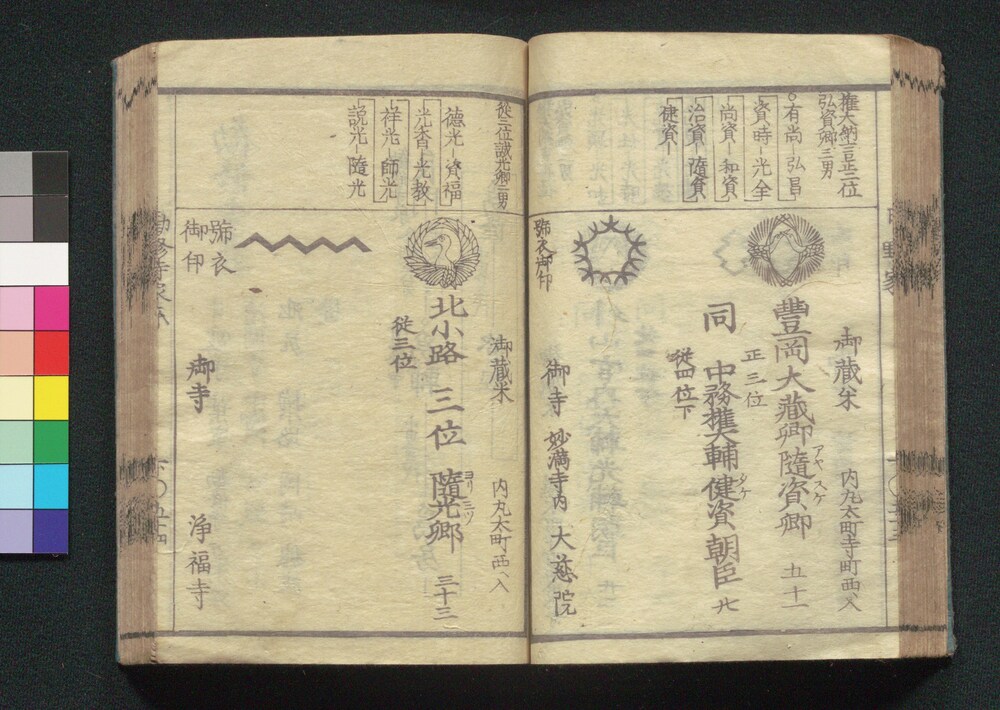 権大納言正二位
弘資卿二男
有尚-弘昌
資時-光全
尚資-和資
治資-随資
健資-
御蔵米
内丸太町寺町西へ入
豊岡大蔵卿随資卿
アヤスケ
五十一
正三位
同 中務権大輔健資朝臣
タケ
廿
従四位下
御寺 妙満寺内 大慈院
号衣御印
従三位誠光卿二男
徳光-資福
光香-光教
祥光-師光
説光-随光
御蔵米
内丸太町西へ入
北小路 三位 随光卿
ヨリミツ
三十三
従三位
号衣
御印
御寺
浄福寺